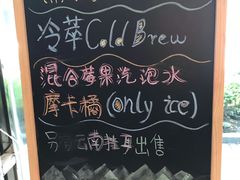 冷萃Cold Brew
混合莓果汽泡水
摩卡橘(only ice)
另有云南挂耳出售